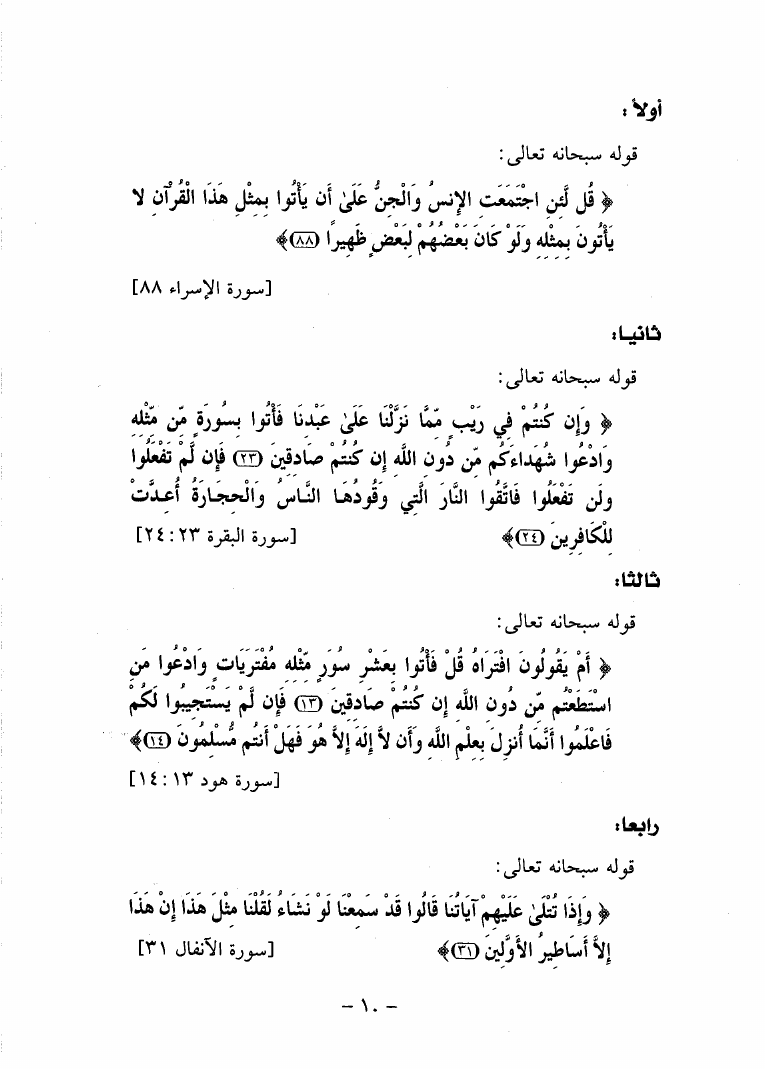 أولاً :
قوله سبحانه تعالى:
﴿ قُل لَّئِنِ اجْتَمَعَتِ الإِنسُ وَالْجِنُّ عَلَىٰ أَن يَأْتُوا بِمِثْلِ هَذَا الْقُرْآنِ لا
يَأْتُونَ بِمِثْلِهِ وَلَوْ كَانَ بَعْضُهُمْ لِبَعْضٍ ظَهِيرًا (٨٨)﴾
[سورة الإسراء ٨٨]
ثانيا:
قوله سبحانه تعالى:
﴿ وَإِن كُنتُمْ فِي رَيْبٍ مِّمَّا نَزَّلْنَا عَلَىٰ عَبْدِنَا فَأْتُوا بِسُورَةٍ مِّن مِّثْلِهِ
وَادْعُوا شُهَدَاءَكُم مِّن دُونِ اللَّهِ إِن كُنتُمْ صَادِقِينَ (٢٣) فَإِن لَّمْ تَفْعَلُوا
وَلَن تَفْعَلُوا فَاتَّقُوا النَّارَ الَّتِي وَقُودُهَا النَّاسُ وَالْحِجَارَةُ أُعِدَّتْ
لِلْكَافِرِينَ (٢٤)﴾ [سورة البقرة ٢٣ : ٢٤]
ثالثا:
قوله سبحانه تعالى:
﴿ أَمْ يَقُولُونَ افْتَرَاهُ قُلْ فَأْتُوا بِعَشْرِ سُوَرٍ مِّثْلِهِ مُفْتَرَيَاتٍ وَادْعُوا مَنِ
اسْتَطَعْتُم مِّن دُونِ اللَّهِ إِن كُنتُمْ صَادِقِينَ (١٣) فَإِن لَّمْ يَسْتَجِيبُوا لَكُمْ
فَاعْلَمُوا أَنَّمَا أُنزِلَ بِعِلْمِ اللَّهِ وَأَن لاَّ إِلَهَ إِلاَّ هُوَ فَهَلْ أَنتُم مُّسْلِمُونَ (١٤)﴾
[سورة هود ١٣ : ١٤]
رابعا:
قوله سبحانه تعالى:
﴿ وَإِذَا تُتْلَىٰ عَلَيْهِمْ آيَاتُنَا قَالُوا قَدْ سَمِعْنَا لَوْ نَشَاءُ لَقُلْنَا مِثْلَ هَذَا إِنْ هَذَا
إِلاَّ أَسَاطِيرُ الأَوَّلِينَ (٣١)﴾ [سورة الآنفال ٣١]
– ١٠ –